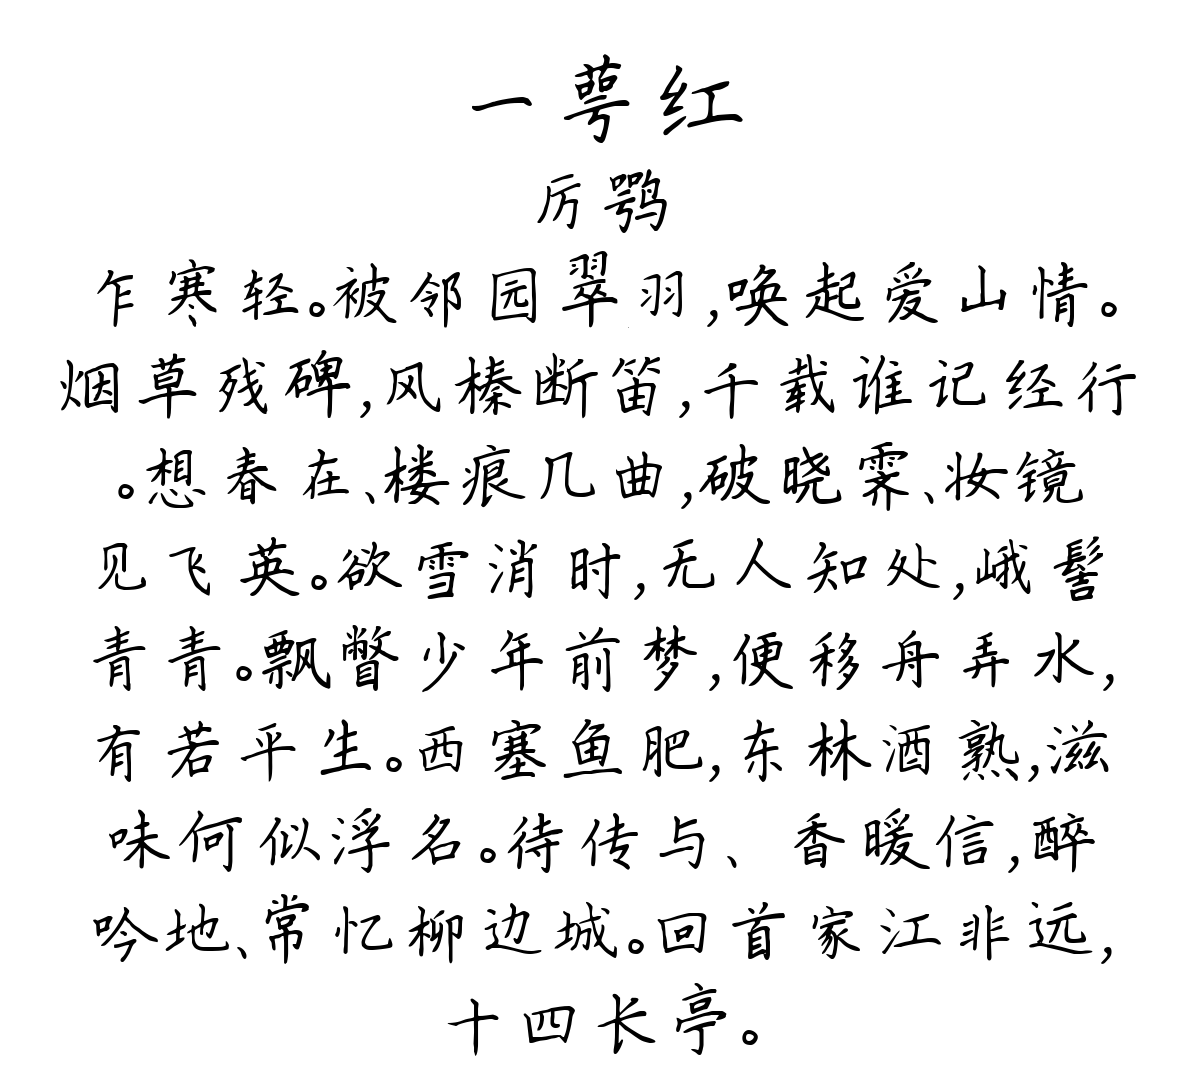 一萼红
厉鹗
乍寒轻。被邻园翠羽,唤起爱山情。
烟草残碑,风榛断笛,千载谁记经行
。想春在、楼痕几曲,破晓霁、妆镜
见飞英。欲雪消时,无人知处,峨髻
青青。飘瞥少年前梦,便移舟弄水,
有若平生。西塞鱼肥,东林酒熟,滋
味何似浮名。待传与、香暖信,醉
吟地、常忆柳边城。回首家江非远,
十四长亭。